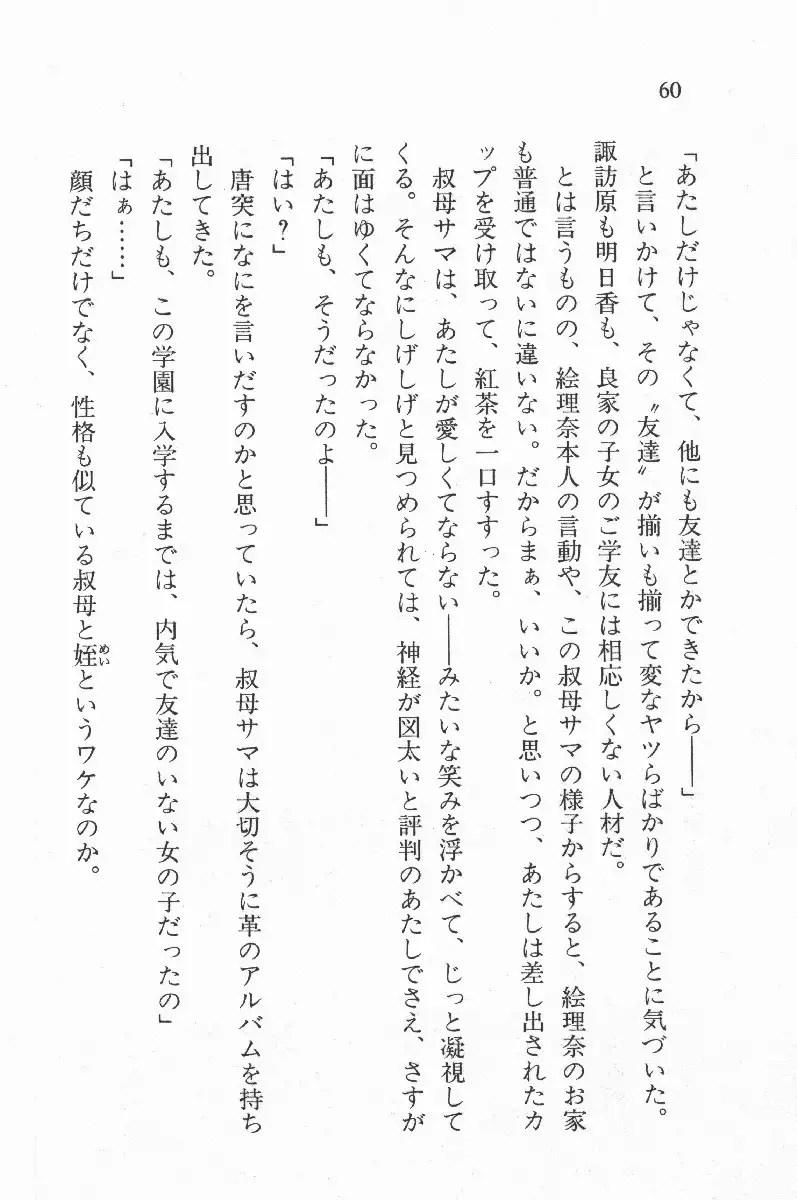 60
「あたしだけじゃなくて、他にも友達とかできたから――」
と言いかけて、その〝友達〟が揃いも揃って変なヤツらばかりであることに気づいた。
諏訪原も明日香も、良家の子女のご学友には相応しくない人材だ。
とは言うものの、絵理奈本人の言動や、この叔母サマの様子からすると、絵理奈のお家
も普通ではないに違いない。だからまぁ、いいか。と思いつつ、あたしは差し出されたカ
ップを受け取って、紅茶を一口すすった。
叔母サマは、あたしが愛しくてならない――みたいな笑みを浮かべて、じっと凝視して
くる。そんなにしげしげと見つめられては、神経が図太いと評判のあたしでさえ、さすが
に面はゆくてならなかった。
「あたしも、そうだったのよ――」
「はい？」
唐突になにを言いだすのかと思っていたら、叔母サマは大切そうに革のアルバムを持ち
出してきた。
「あたしも、この学園に入学するまでは、内気で友達のいない女の子だったの」
「はぁ……」
顔だちだけでなく、性格も似ている叔母と姪めいというワケなのか。